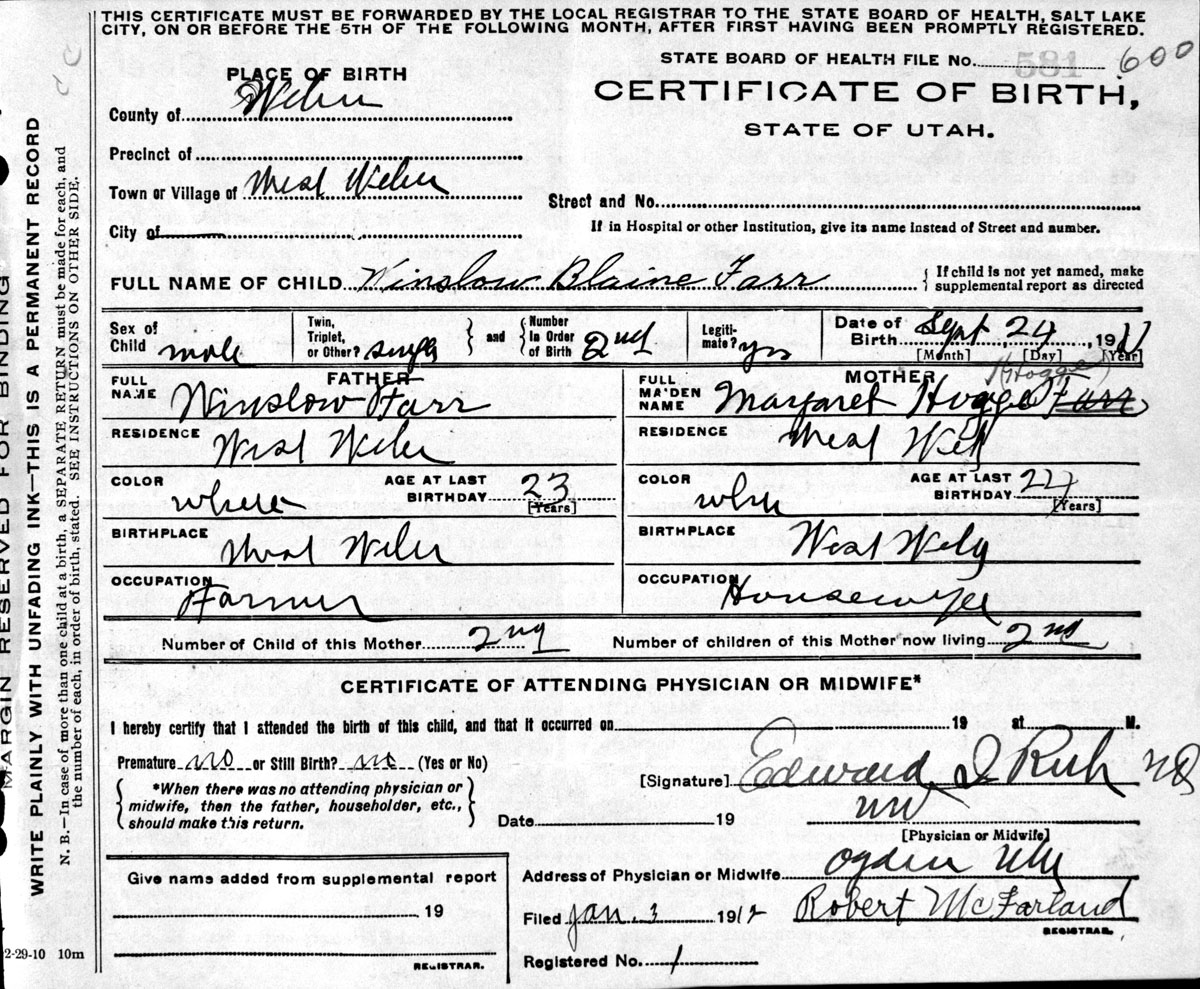 THIS CERTIFICATE MUST BE FORWARDED BY THE LOCAL REGISTRAR TO THE STATE BOARD OF HEALTH, SALT LAKE
CITY, ON OR BEFORE THE 5TH OF THE FOLLOWING MONTH, AFTER FIRST HAVING BEEN PROMPTLY REGISTERED.
STATE BOARD OF HEALTH FILE No. 581 600
PLACE OF BIRTH
CERTIFICATE OF BIRTH,
STATE OF UTAH.
County of Weber
Precinct of
Town or Village of West Weber
Street and No.
City of
If in Hospital or other Institution, give its name instead of Street and number.
FULL NAME OF CHILD Winslow Blaine Farr { If child is not yet named, make
supplemental report as directed
Sex of Child male
Twin, Triplet, or Other? single } and { Number In Order of Birth 2nd
Legitimate? yes
Date of Birth Sept. 24, 1911
[Month] [Day] [Year]
FATHER
FULL NAME Winslow Farr
RESIDENCE West Weber
COLOR white AGE AT LAST BIRTHDAY 23
[Years]
BIRTHPLACE West Weber
OCCUPATION Farmer
MOTHER
(Hogge)
FULL MAIDEN NAME Margaret Hogge Farr
RESIDENCE West Web
COLOR white AGE AT LAST BIRTHDAY
[Years]
BIRTHPLACE West
OCCUPATION Housewife
Number of Child of this Mother 2nd Number of children of this Mother now living 2nd
CERTIFICATE OF ATTENDING PHYSICIAN OR MIDWIFE*
I hereby certify that I attended the birth of this child, and that it occurred on 19 at M.
Premature no or Still Birth? no (Yes or No)
[Signature] Edward I Rich MD
*When there was no attending physician or
midwife, then the father, householder, etc.,
should make this return.
Date 19
[Physician or Midwife]
Address of Physician or Midwife Ogden Utah
Filed Jan. 3 1912 Robert McFarland
REGISTRAR.
Registered No. 1
Give name added from supplemental report
19
REGISTRAR.
MARGIN RESERVED FOR BINDING
WRITE PLAINLY WITH UNFADING INK—THIS IS A PERMANENT RECORD
N. B.—In case of more than one child at a birth, a SEPARATE RETURN must be made for each, and
the number of each, in order of birth, stated. SEE INSTRUCTIONS ON OTHER SIDE.
2-29-10 10m